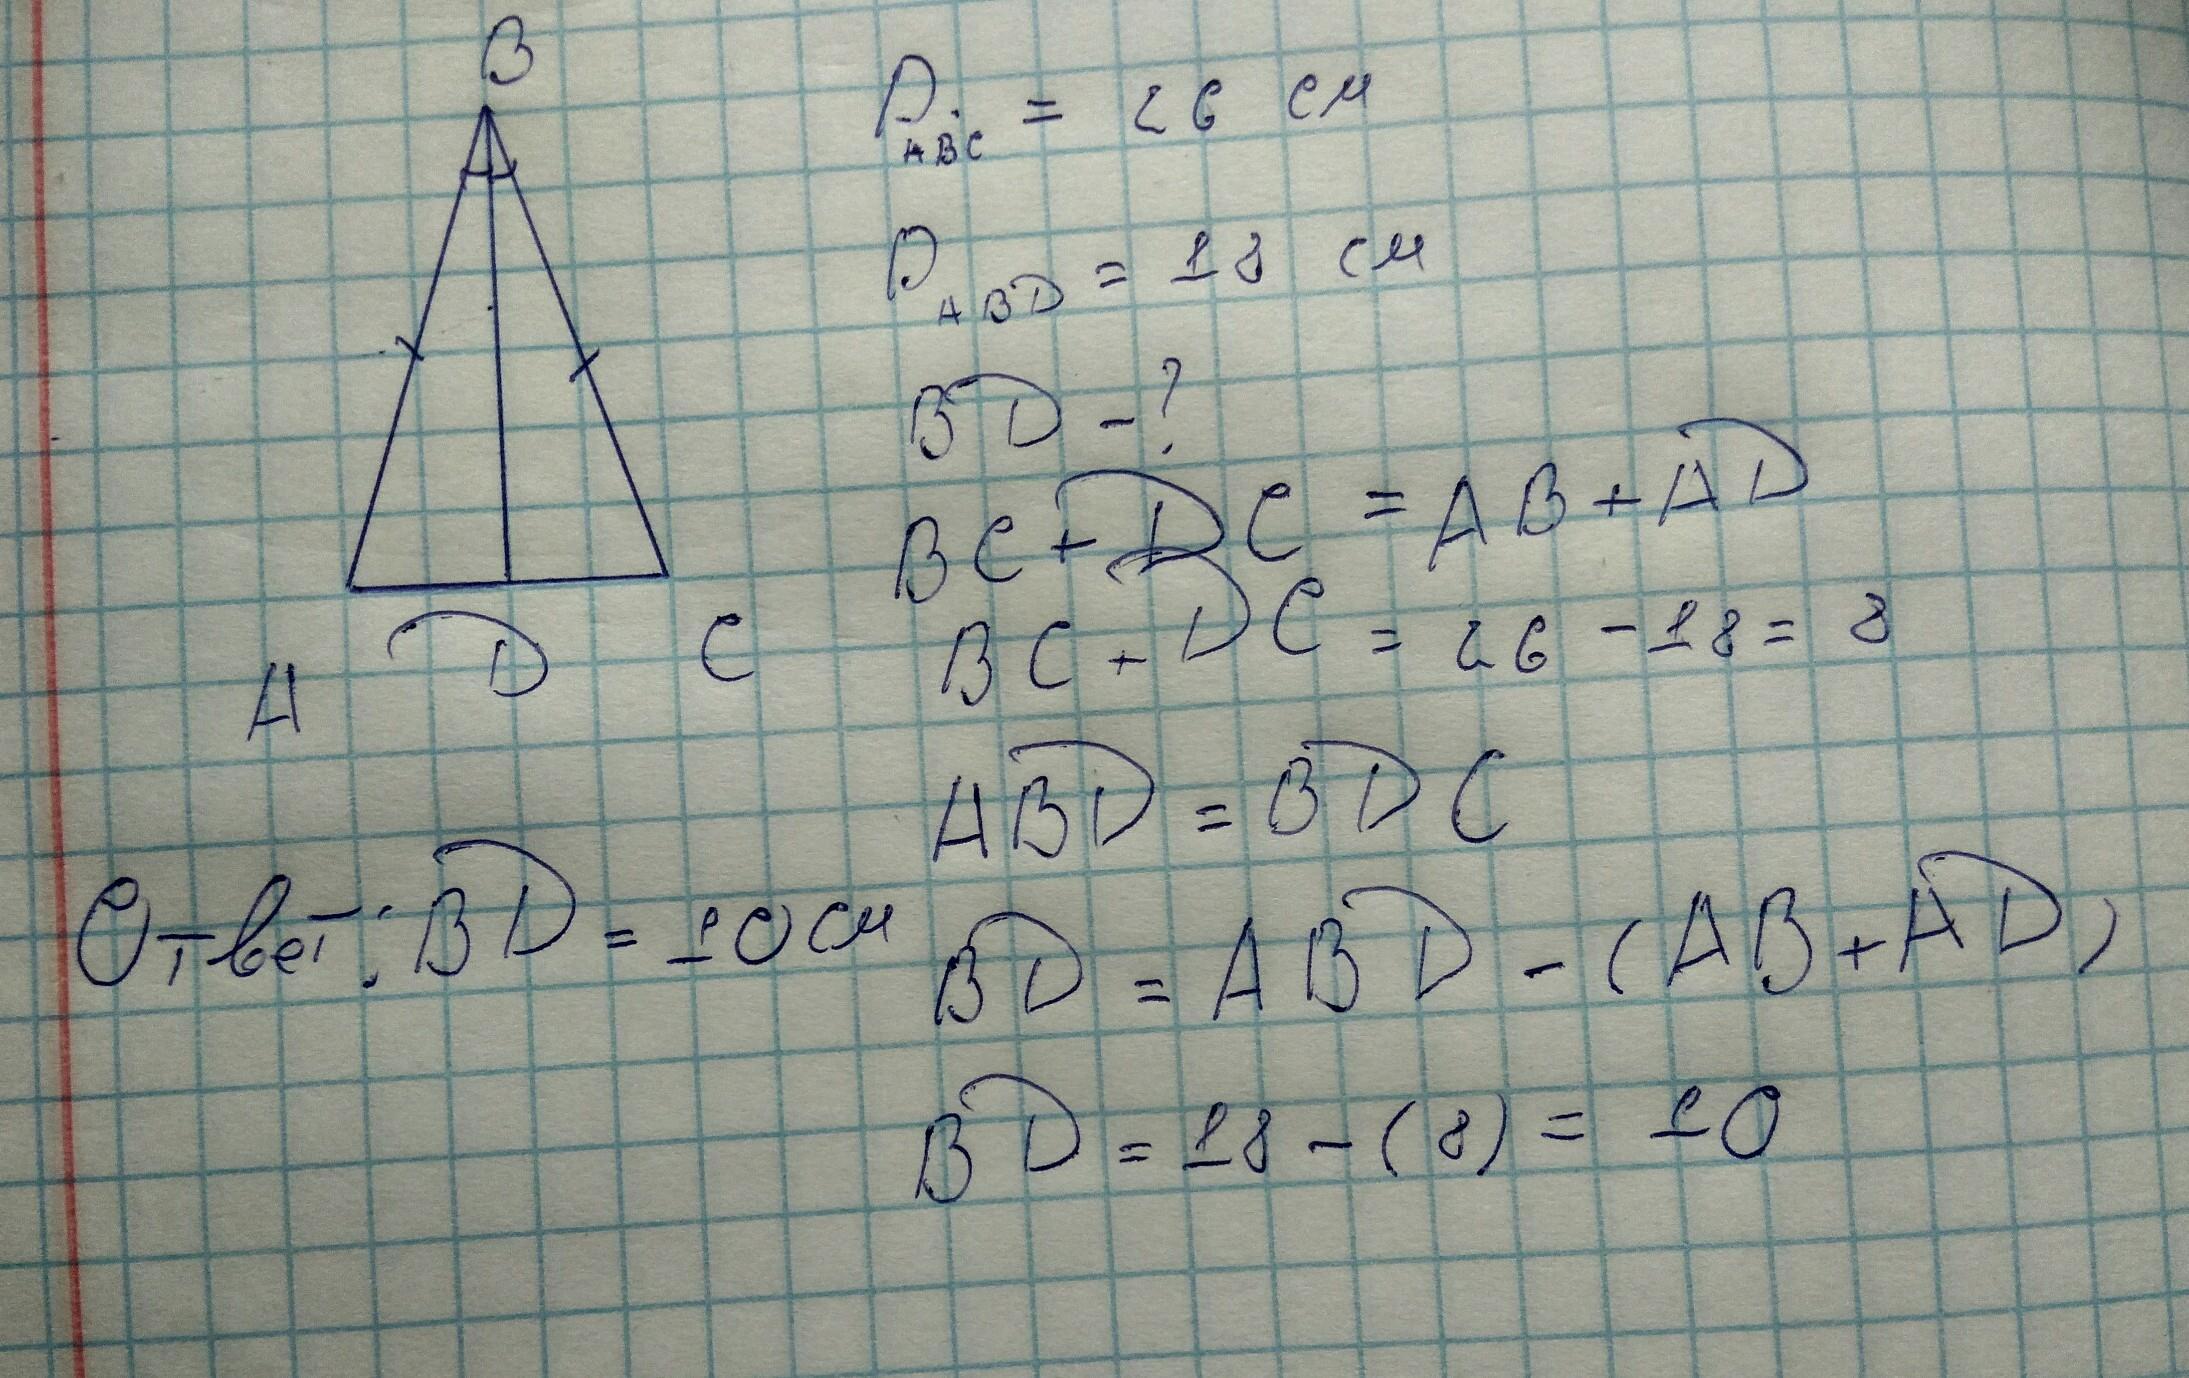 B
A D C
P ABC = 26 см
P ABD = 18 см
BD - ?
BC + DC = AB + AD
BC + DC = 26 - 18 = 8
ABD = BDC
BD = ABD - (AB + AD)
BD = 18 - (8) = 10
Ответ: BD = 10 см